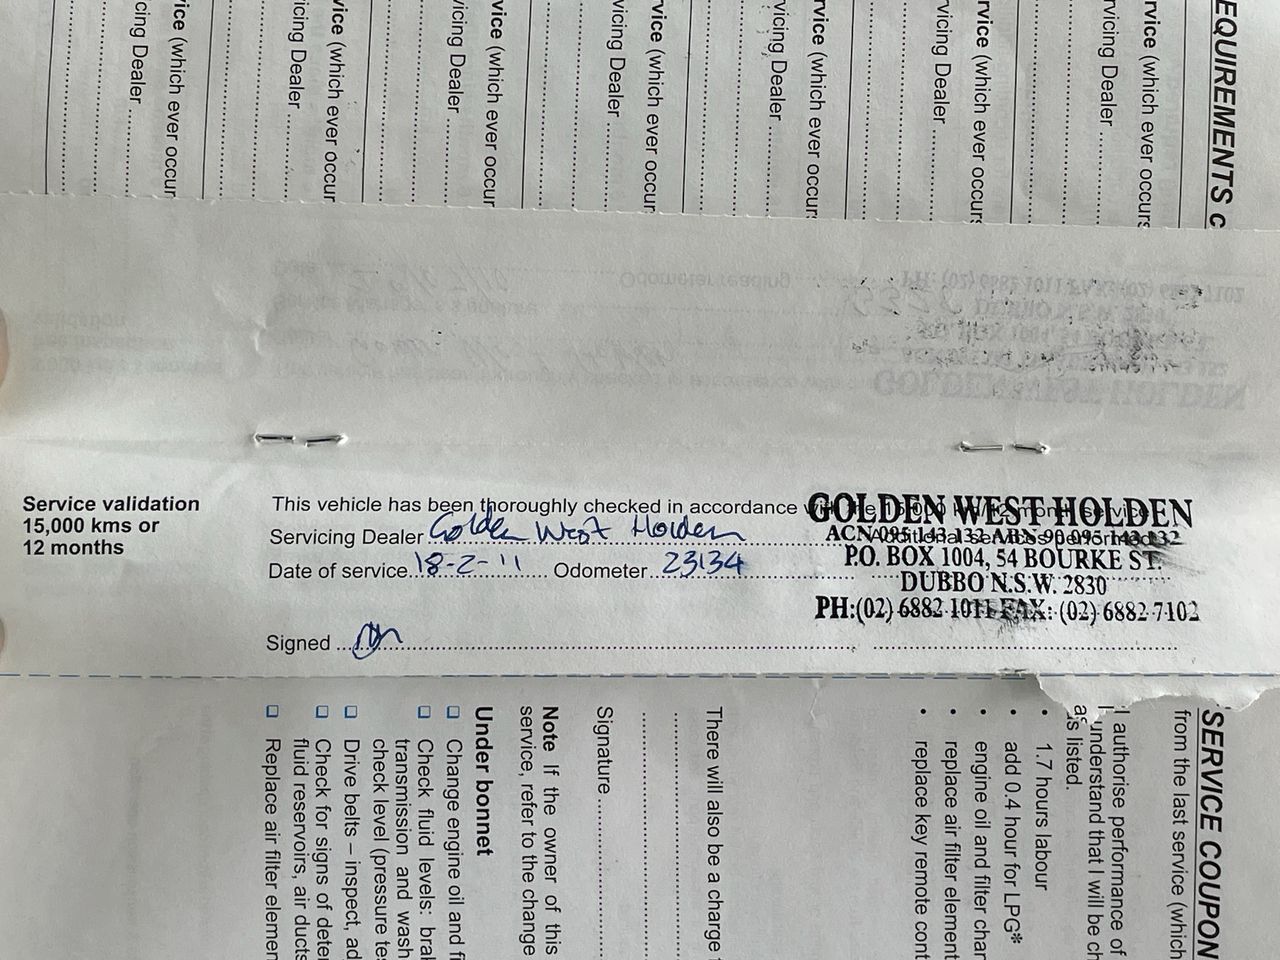 EQUIREMENTS c
rvice (which ever occurs
vicing Dealer
rvice (which ever occurs
vicing Dealer
rvice (which ever occurs
vicing Dealer
rvice (which ever occur
vicing Dealer
vice (which ever occur
vicing Dealer
vice (which ever occur
icing Dealer
ice (which ever occur
cing Dealer
Service validation
15,000 kms or
12 months
This vehicle has been thoroughly checked in accordance with the 15,000 km/12 month service
Servicing Dealer Golden West Holden
Date of service 18-2-11 Odometer 23134
Signed
GOLDEN WEST HOLDEN
ACN 095 143 132 ABN 90 095 143 132
P.O. BOX 1004, 54 BOURKE ST.
DUBBO N.S.W. 2830
PH:(02) 6882 1011 FAX: (02) 6882 7102
SERVICE COUPON
from the last service (which
I authorise performance of
I understand that I will be ch
as listed.
• 1.7 hours labour
• add 0.4 hour for LPG*
• engine oil and filter chan
• replace air filter element
• replace key remote cont
There will also be a charge
Signature
Note If the owner of this
service, refer to the change
Under bonnet
Change engine oil and fi
Check fluid levels: brak
transmission and wash
check level (pressure te
Drive belts – inspect, ad
Check for signs of deter
fluid reservoirs, air ducts
Replace air filter elemen